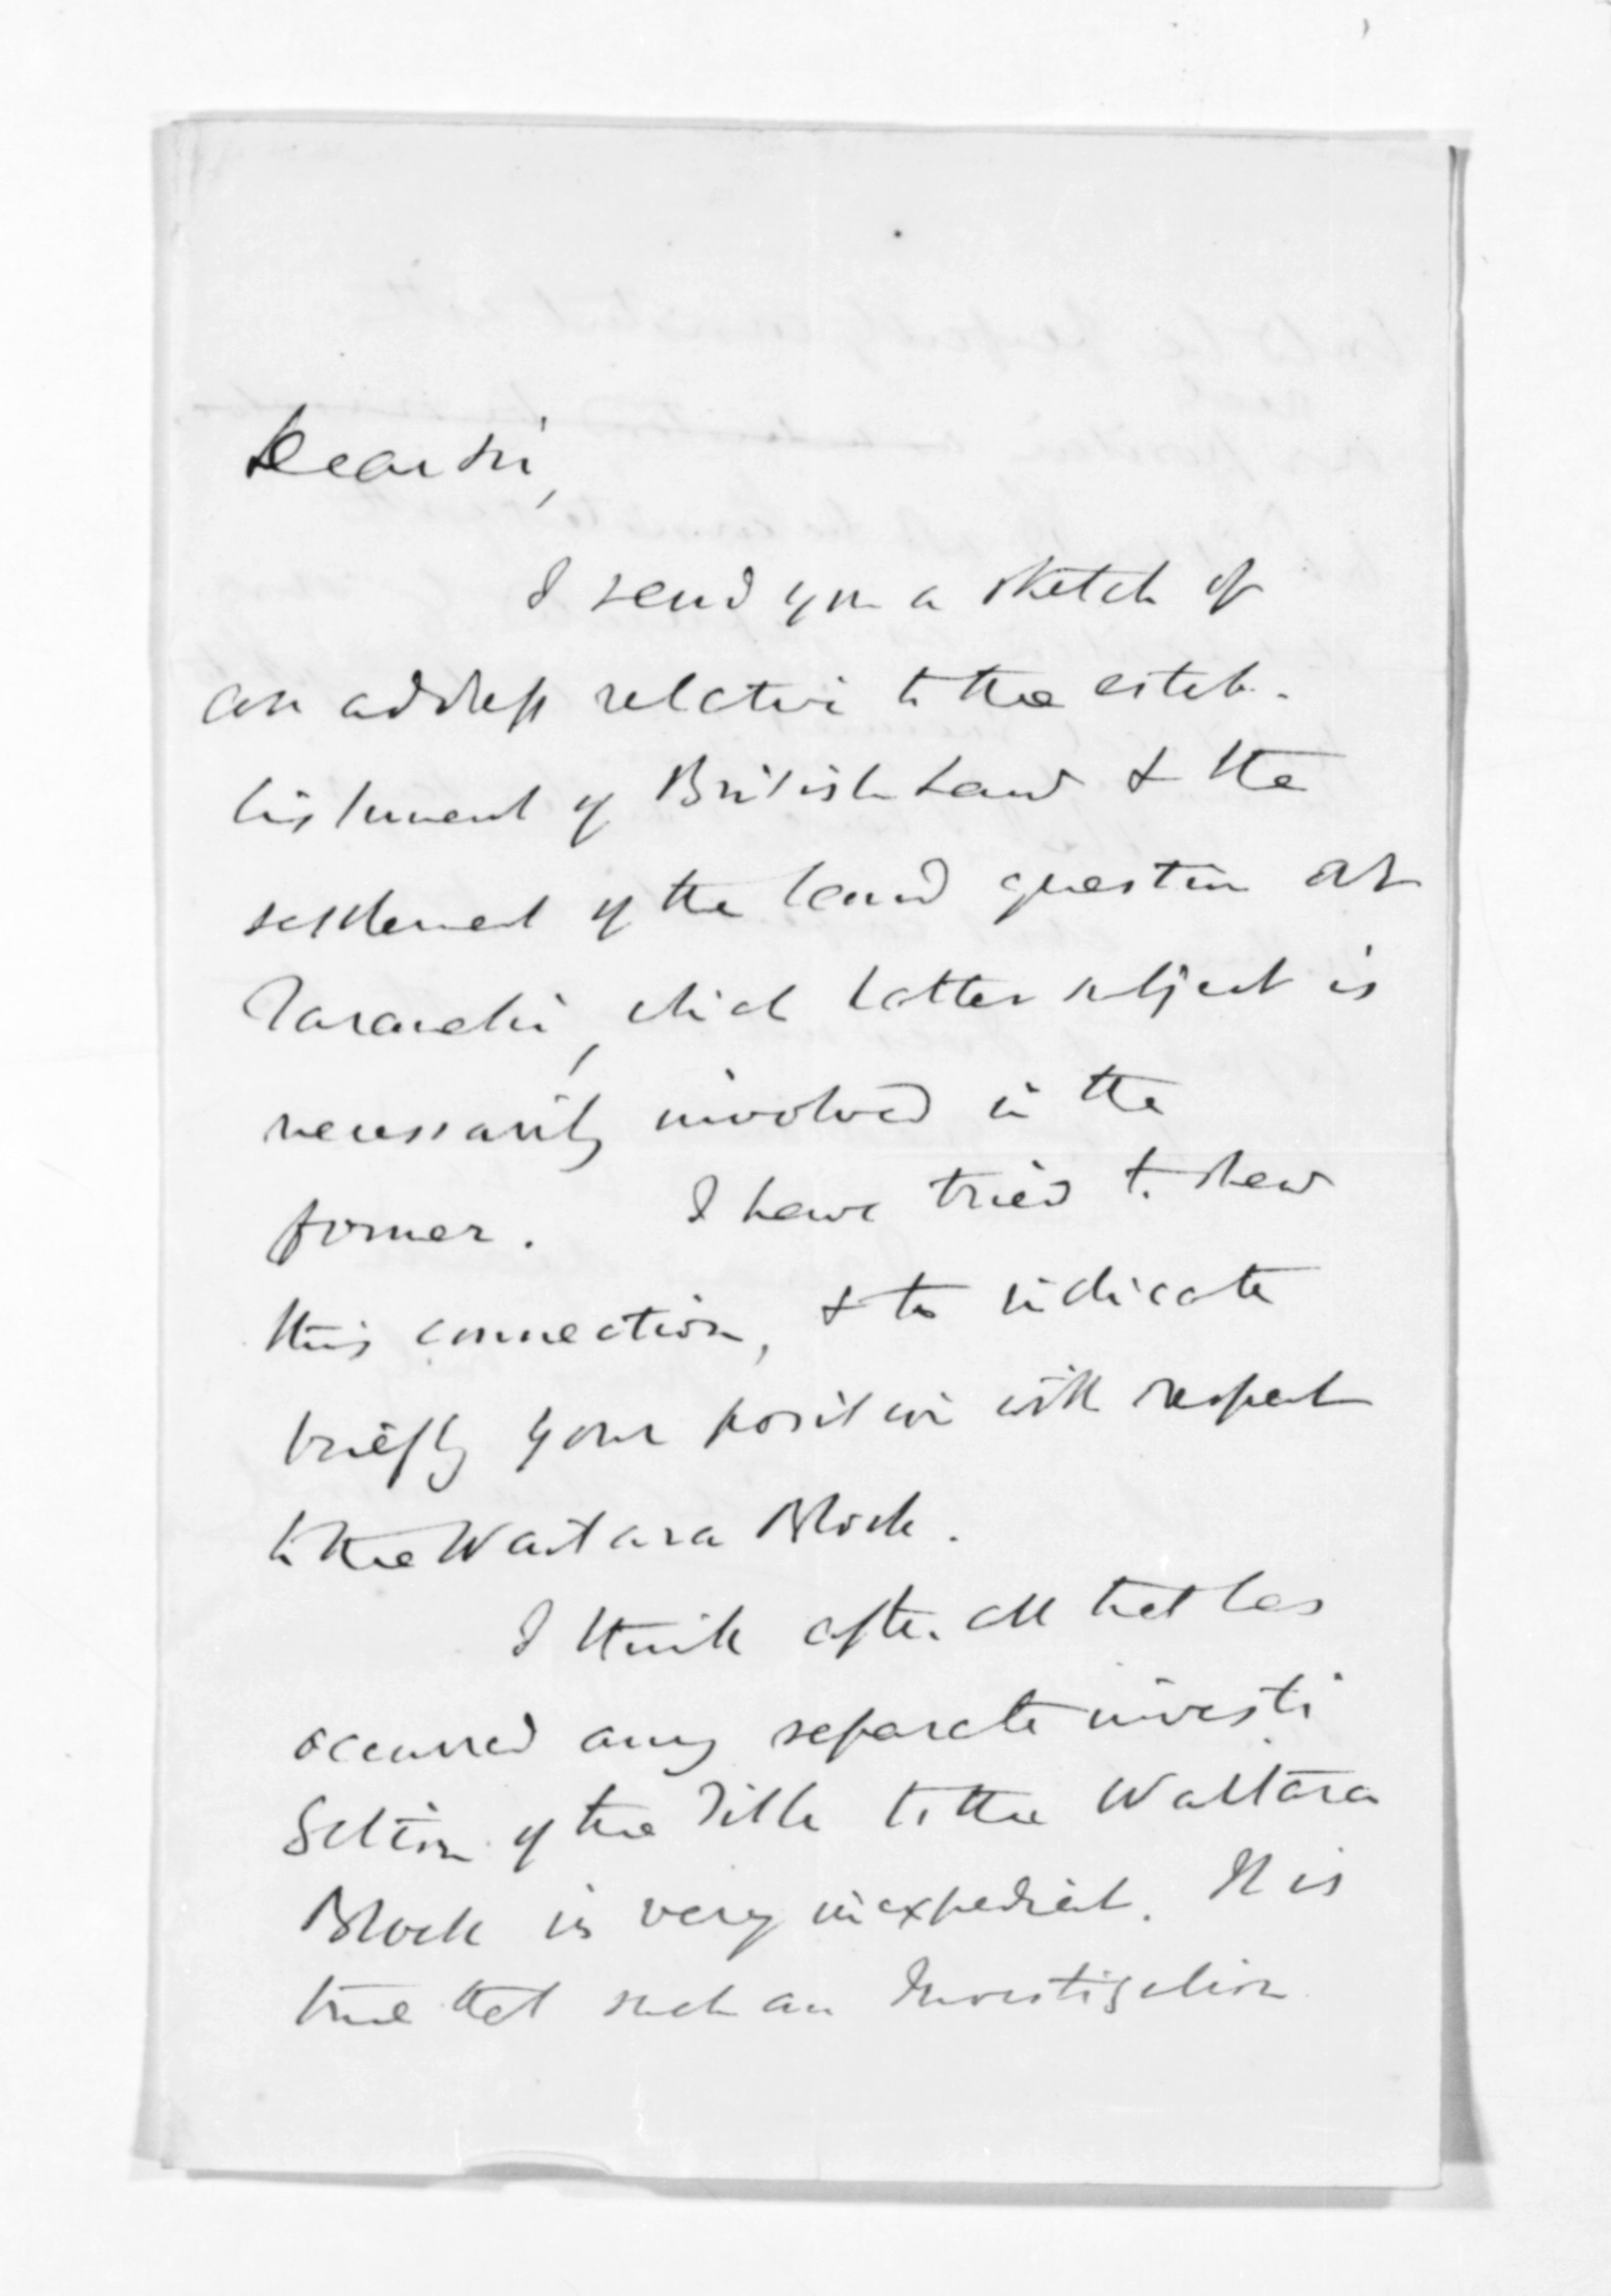 Dear Sir,
I send you a sketch of
an address relative to the estab-
lishment of British Law & the
settlement of the land question at
Taranaki, which latter subject is
necessarily involved in the
former. I have tried to shew
this connection, & to indicate
briefly your position with respect
to the Waitara Block.
I think after all that has
occurred any separate investi
gation of the Title to the Waitara
Block is very inexpedient. It is
true that such an Investigation